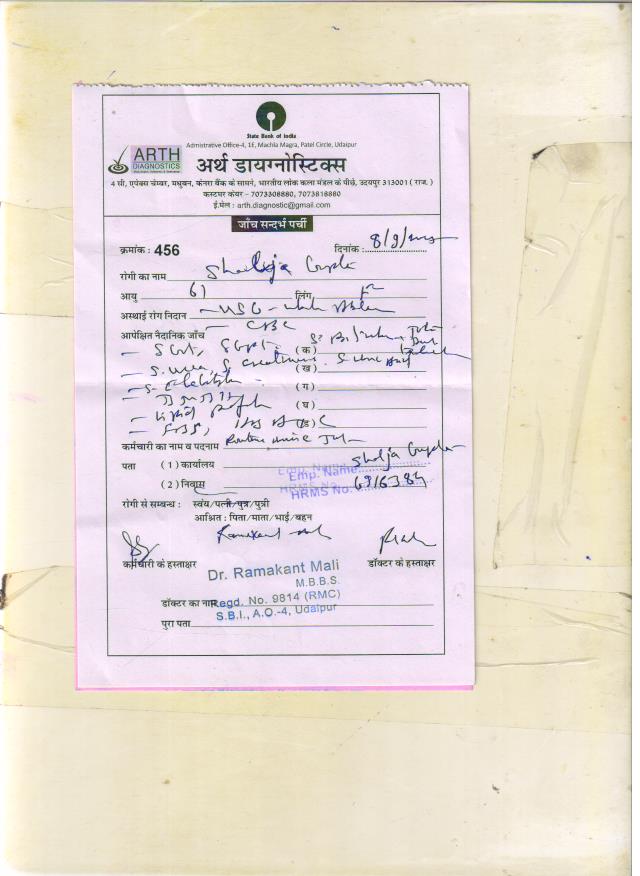 State Bank of India
Admistrative Office-4, 1E, Machla Magra, Patel Circle, Udaipur
ARTH
DIAGNOSTICS
अर्थ डायग्नोस्टिक्स
4 सी, एपेक्स चेम्बर, मधुबन, केनरा बैंक के सामने, भारतीय लोक कला मंडल के पीछे, उदयपुर 313001 ( राज. )
कस्टमर केयर - 7073308880, 7073818880
ई.मेल : arth.diagnostic@gmail.com
जाँच सन्दर्भ पर्ची
क्रमांक : 456 दिनांक : 8/9/
रोगी का नाम Shailja Gupta
आयु 61 लिंग F
अस्थाई रोग निदान - USG - Abdomen
- CBC
अपेक्षित नैदानिक जाँच
- SGOT, SGPT, (क) S. Bilirubin
- S. urea, S. Creatinine, (ख) S. Uric Acid
- S. Electrolyte (ग)
(घ)
- Lipid Profile
- FBS, (ड) HbA1C
कर्मचारी का नाम व पदनाम Routine urine
पता ( 1 ) कार्यालय Shalja Gupta
Emp. Name
( 2 ) निवास HRMS No. 6916384
रोगी से सम्बन्ध : स्वंय/पत्नी/पुत्र/पुत्री
आश्रित : पिता/माता/भाई/बहन
Ramakant Mali
कर्मचारी के हस्ताक्षर डॉक्टर के हस्ताक्षर
Dr. Ramakant Mali
M.B.B.S.
डॉक्टर का नाम Regd. No. 9814 (RMC)
S.B.I., A.O.-4, Udaipur
पुरा पता